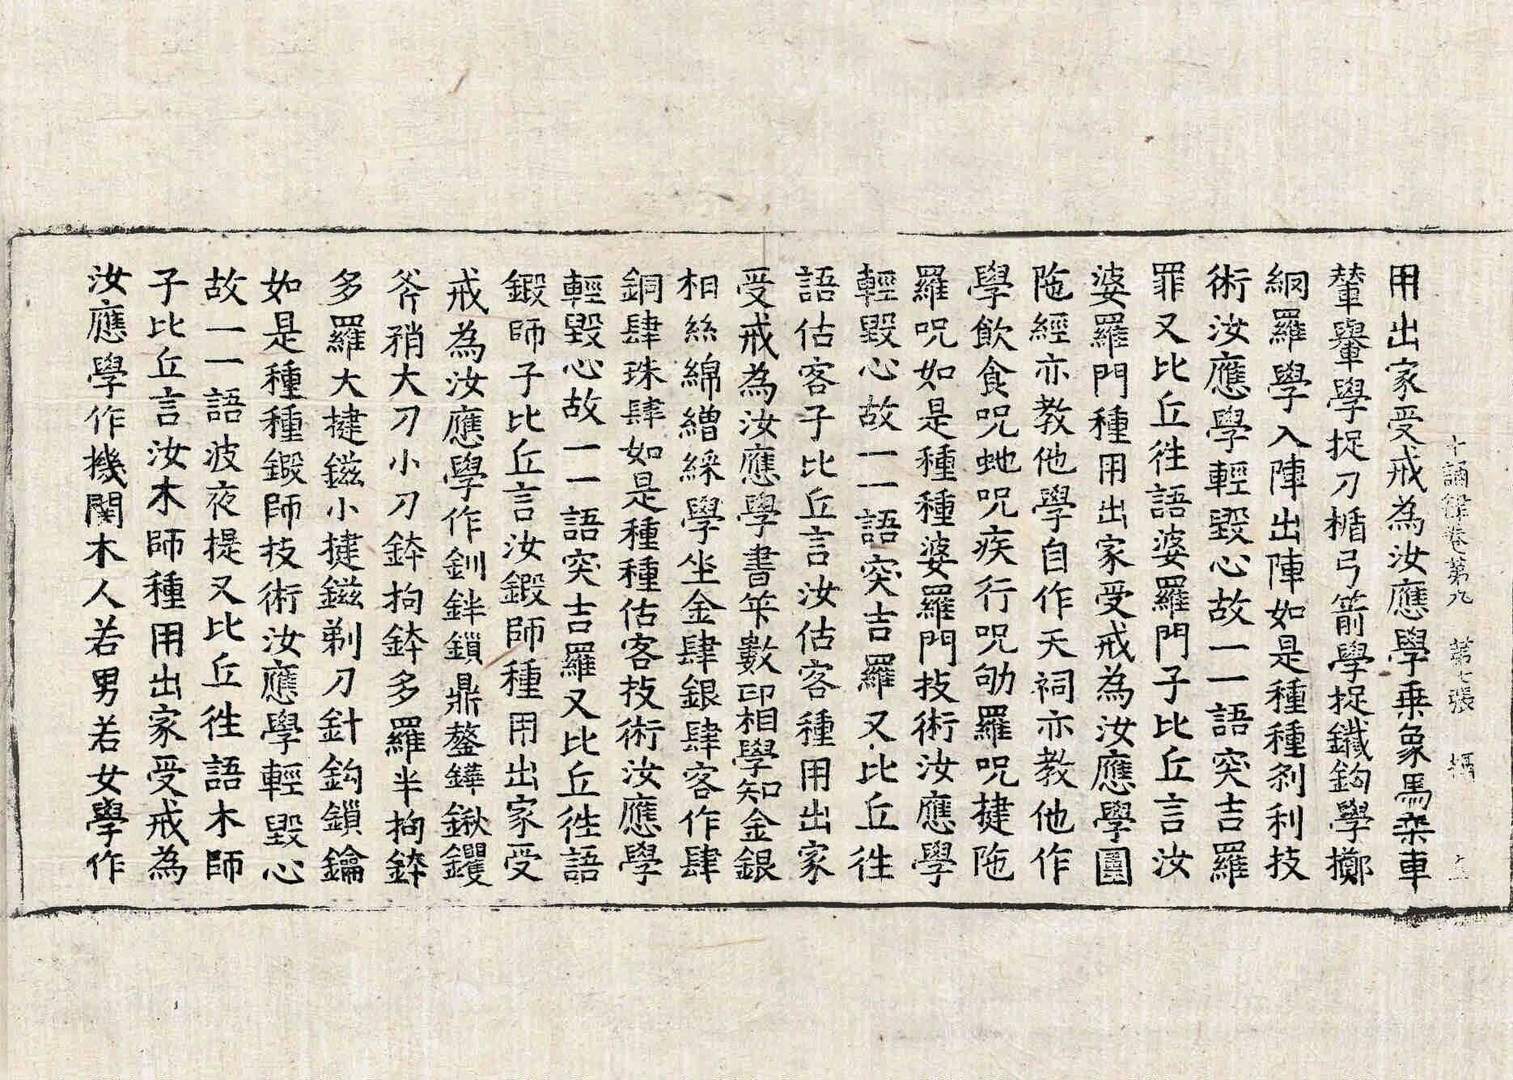 十誦律卷第九　第七張　攝　上
用出家受戒為汝應學乗象馬桒車
輦轝學捉刀楯弓箭學捉鐵鉤學擲
䋄羅學入陣出陣如是種種剎利技
術汝應學輕毀心故一一語突吉羅
罪又比丘徃語婆羅門子比丘言汝
婆羅門種用出家受戒為汝應學圍
陁經亦教他學自作天祠亦教他作
學飲食呪虵呪疾行呪劬羅呪揵陁
羅呪如是種種婆羅門技術汝應學
輕毀心故一一語突吉羅又比丘徃
語估客子比丘言汝估客種用出家
受戒為汝應學書筭數印相學知金銀
相絲綿繒綵學坐金肆銀肆客作肆
銅肆珠肆如是種種估客技術汝應學
輕毀心故一一語突吉羅又比丘徃語
鍛師子比丘言汝鍛師種用出家受
戒為汝應學作釧鉡鎖鼎鏊鏵鍬钁
斧矟大刀小刀鉢拘鉢多羅半拘鉢
多羅大揵鎡小揵鎡剃刀針鉤鎖鑰
如是種種鍛師技術汝應學輕毀心
故一一語波夜提又比丘徃語木師
子比丘言汝木師種用出家受戒為
汝應學作機關木人若男若女學作